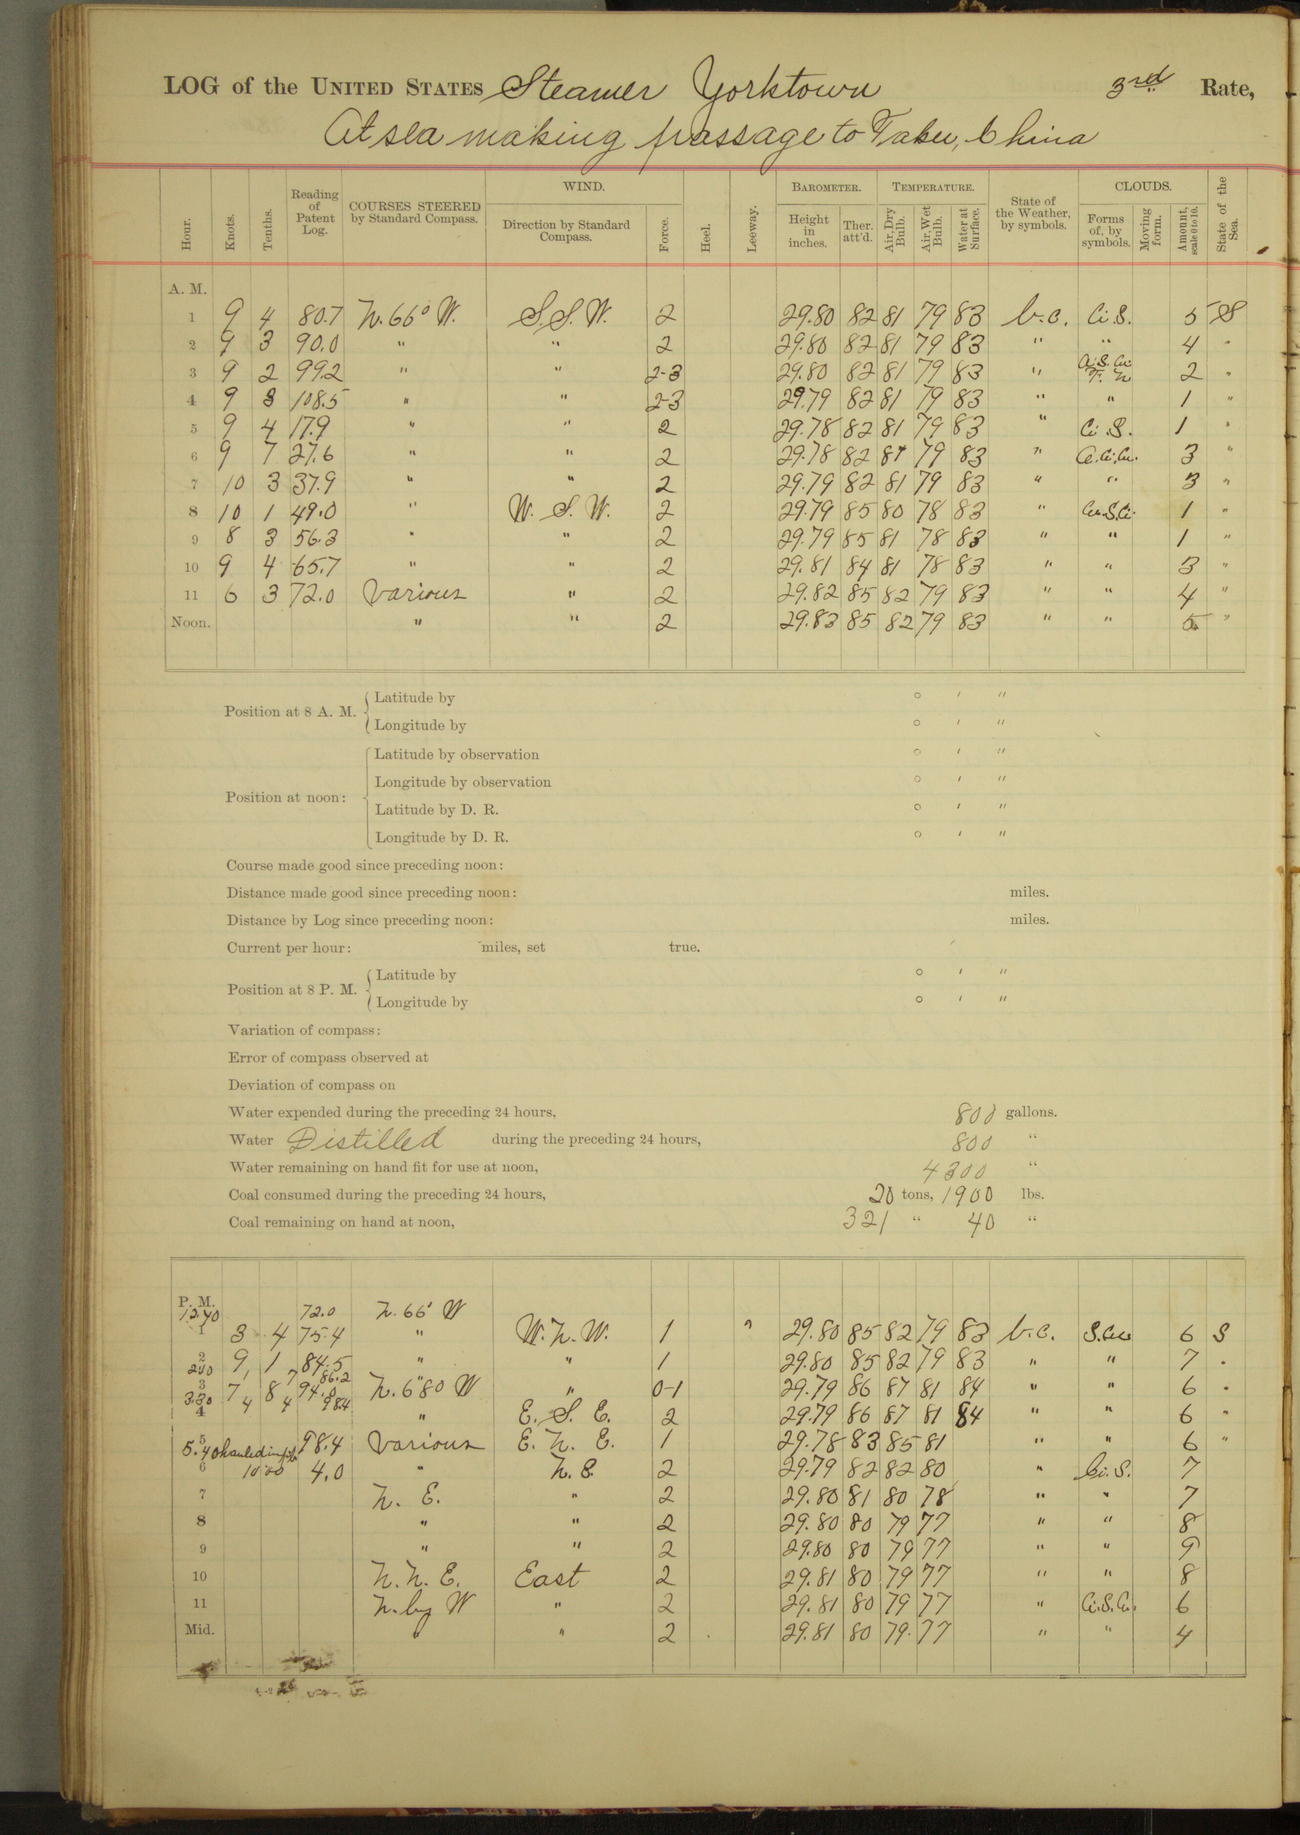 LOG of the UNITED STATES Steamer Yorktown 3rd Rate,
At sea making passage to Taku, China
Hour. Knots. Tenths. Reading of Patent Log. COURSES STEERED by Standard Compass. WIND. Direction by Standard Compass. Force. Heel. Leeway. BAROMETER. Height in inches. Ther. att'd. TEMPERATURE. Air, Dry Bulb. Air, Wet Bulb. Water at Surface. State of the Weather, by symbols. CLOUDS. Forms of, by symbols. Moving form. Amount, scale 0 to 10. State of the Sea.
A. M.
1 9 4 80.7 N. 66° W. S.S.W. 2 29.80 82 81 79 83 b.c. Ci.S. 5 S
2 9 3 90.0 " " 2 29.80 82 81 79 83 " " 4 "
3 9 2 99.2 " " 2-3 29.80 82 81 79 83 " 2 "
4 9 3 108.5 " " 2-3 29.79 82 81 79 83 " " 1 "
5 9 4 17.9 " " 2 29.78 82 81 79 83 " Ci.S. 1 "
6 9 7 27.6 " " 2 29.78 82 81 79 83 " 3 "
7 10 3 37.9 " " 2 29.79 82 81 79 83 " " 3 "
8 10 1 49.0 " W. S. W. 2 29.79 85 80 78 83 " Cu.S.Ci. 1 "
9 8 3 56.3 " " 2 29.79 85 81 78 83 " " 1 "
10 9 4 65.7 " " 2 29.81 84 81 78 83 " " 3 "
11 6 3 72.0 Various " 2 29.82 85 82 79 83 " " 4 "
Noon. " " 2 29.83 85 82 79 83 " " 5 "
Position at 8 A. M. { Latitude by ° ′ ″
Longitude by ° ′ ″
Position at noon: { Latitude by observation ° ′ ″
Longitude by observation ° ′ ″
Latitude by D. R. ° ′ ″
Longitude by D. R. ° ′ ″
Course made good since preceding noon:
Distance made good since preceding noon: miles.
Distance by Log since preceding noon: miles.
Current per hour: miles, set true.
Position at 8 P. M. { Latitude by ° ′ ″
Longitude by ° ′ ″
Variation of compass:
Error of compass observed at
Deviation of compass on
Water expended during the preceding 24 hours, 800 gallons.
Water Distilled during the preceding 24 hours, 800 "
Water remaining on hand fit for use at noon, 4300 "
Coal consumed during the preceding 24 hours, 20 tons, 1900 lbs.
Coal remaining on hand at noon, 321 " 40 "
P. M.
12.40 72.0 N. 66° W
1 3 4 75.4 " W. N. W. 1 " 29.80 85 82 79 83 b.c. S.Cu 6 S
2 9 1 84.5 " " 1 29.80 85 82 79 83 " " 7 "
2.10 7 86.2
3 7 8 94.0 N. 680 W " 0-1 29.79 86 87 81 84 " " 6 "
3.30 4 4 98.4
4 " E. S. E. 2 29.79 86 87 81 84 " " 6 "
5 98.4 Various E. N. E. 1 29.78 83 85 81 " " 6 "
5.40 hauled in
6 4.0 " N. E. 2 29.79 82 82 80 " Ci. S. 7
7 N. E. " 2 29.80 81 80 78 " " 7
8 " " 2 29.80 80 79 77 " " 8
9 " " 2 29.80 80 79 77 " " 9
10 N. N. E. East 2 29.81 80 79 77 " " 8
11 N. by W " 2 29.81 80 79 77 " Ci.S.Cu. 6
Mid. " " 2 29.81 80 79 77 " " 4